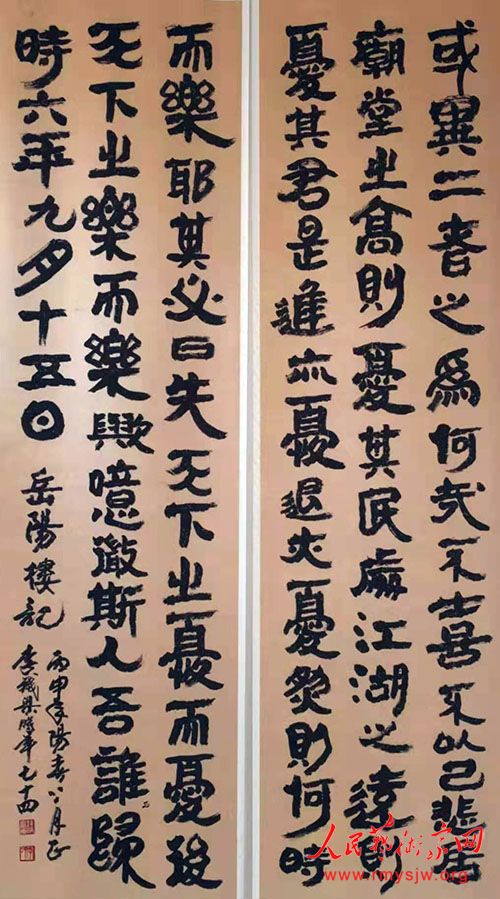 或異二者之爲何哉不士喜不以己悲居
廟堂之高則憂其民處江湖之遠則
憂其君是進亦憂退亦憂然則何時
而樂耶其必曰失天下之憂而憂後
天下之樂而樂歟噫微斯人吾誰歸
時六年九月十五日 岳陽樓記
丙申年陽春月
李時年七十四
人民艺术家网
www.rmysjw.org